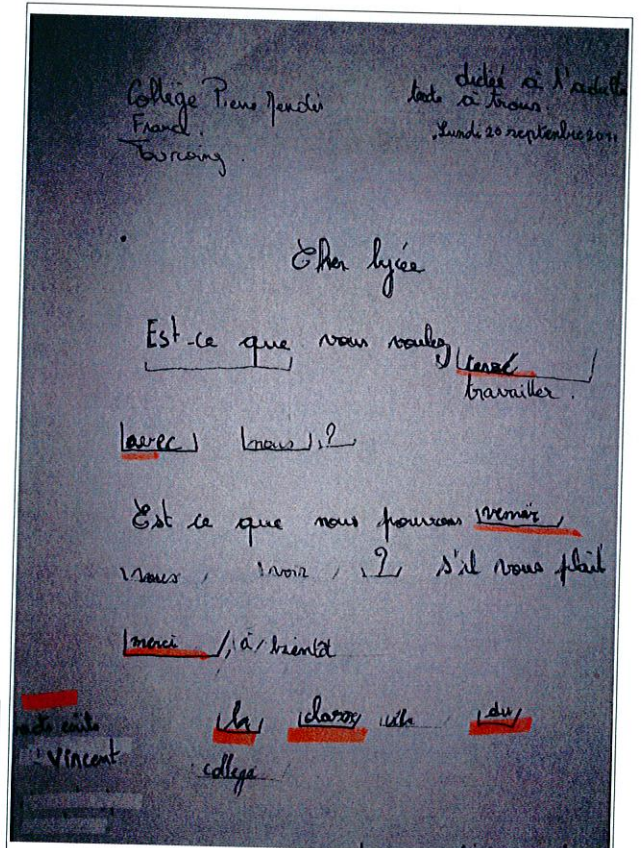 Collège Pierre Mendès
France.
Tourcoing.
dictée à l'adulte
texte à trous.
Lundi 20 septembre 2011
Cher lycée
Est-ce que vous voulez
travailler.
avec nous ?
Est ce que nous pouvons venir
vous voir ? s'il vous plait
merci, à bientôt
la classe ulis du
college
Vincent